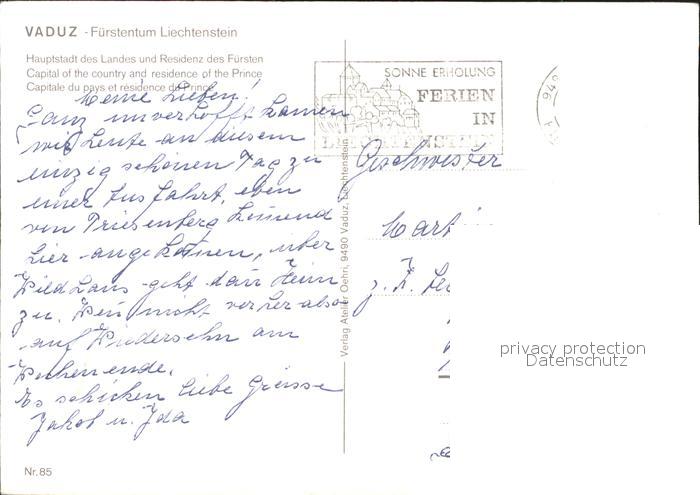 VADUZ - Fürstentum Liechtenstein
Hauptstadt des Landes und Residenz des Fürsten
Capital of the country and residence of the Prince
Capitale du pays et résidence du Prince
Meine Lieben!
Ganz unverhofft kamen
wir heute an diesem
einzig schönen Tag zu
einer Ausfahrt, eben
von Triesenberg kommend
hier angekomen, über
Wildhaus geht dan Heim
zu. Wen nicht vorher also
auf Wiedersehn am
Wochenende.
Es schicken liebe Grüsse
Jakob u. Ida
SONNE ERHOLUNG
FERIEN
IN
LIECHTENSTEIN
949
Geschwister
Mart
z. H.
Verlag Atelier Oehri, 9490 Vaduz, Liechtenstein
privacy protection
Datenschutz
Nr. 85